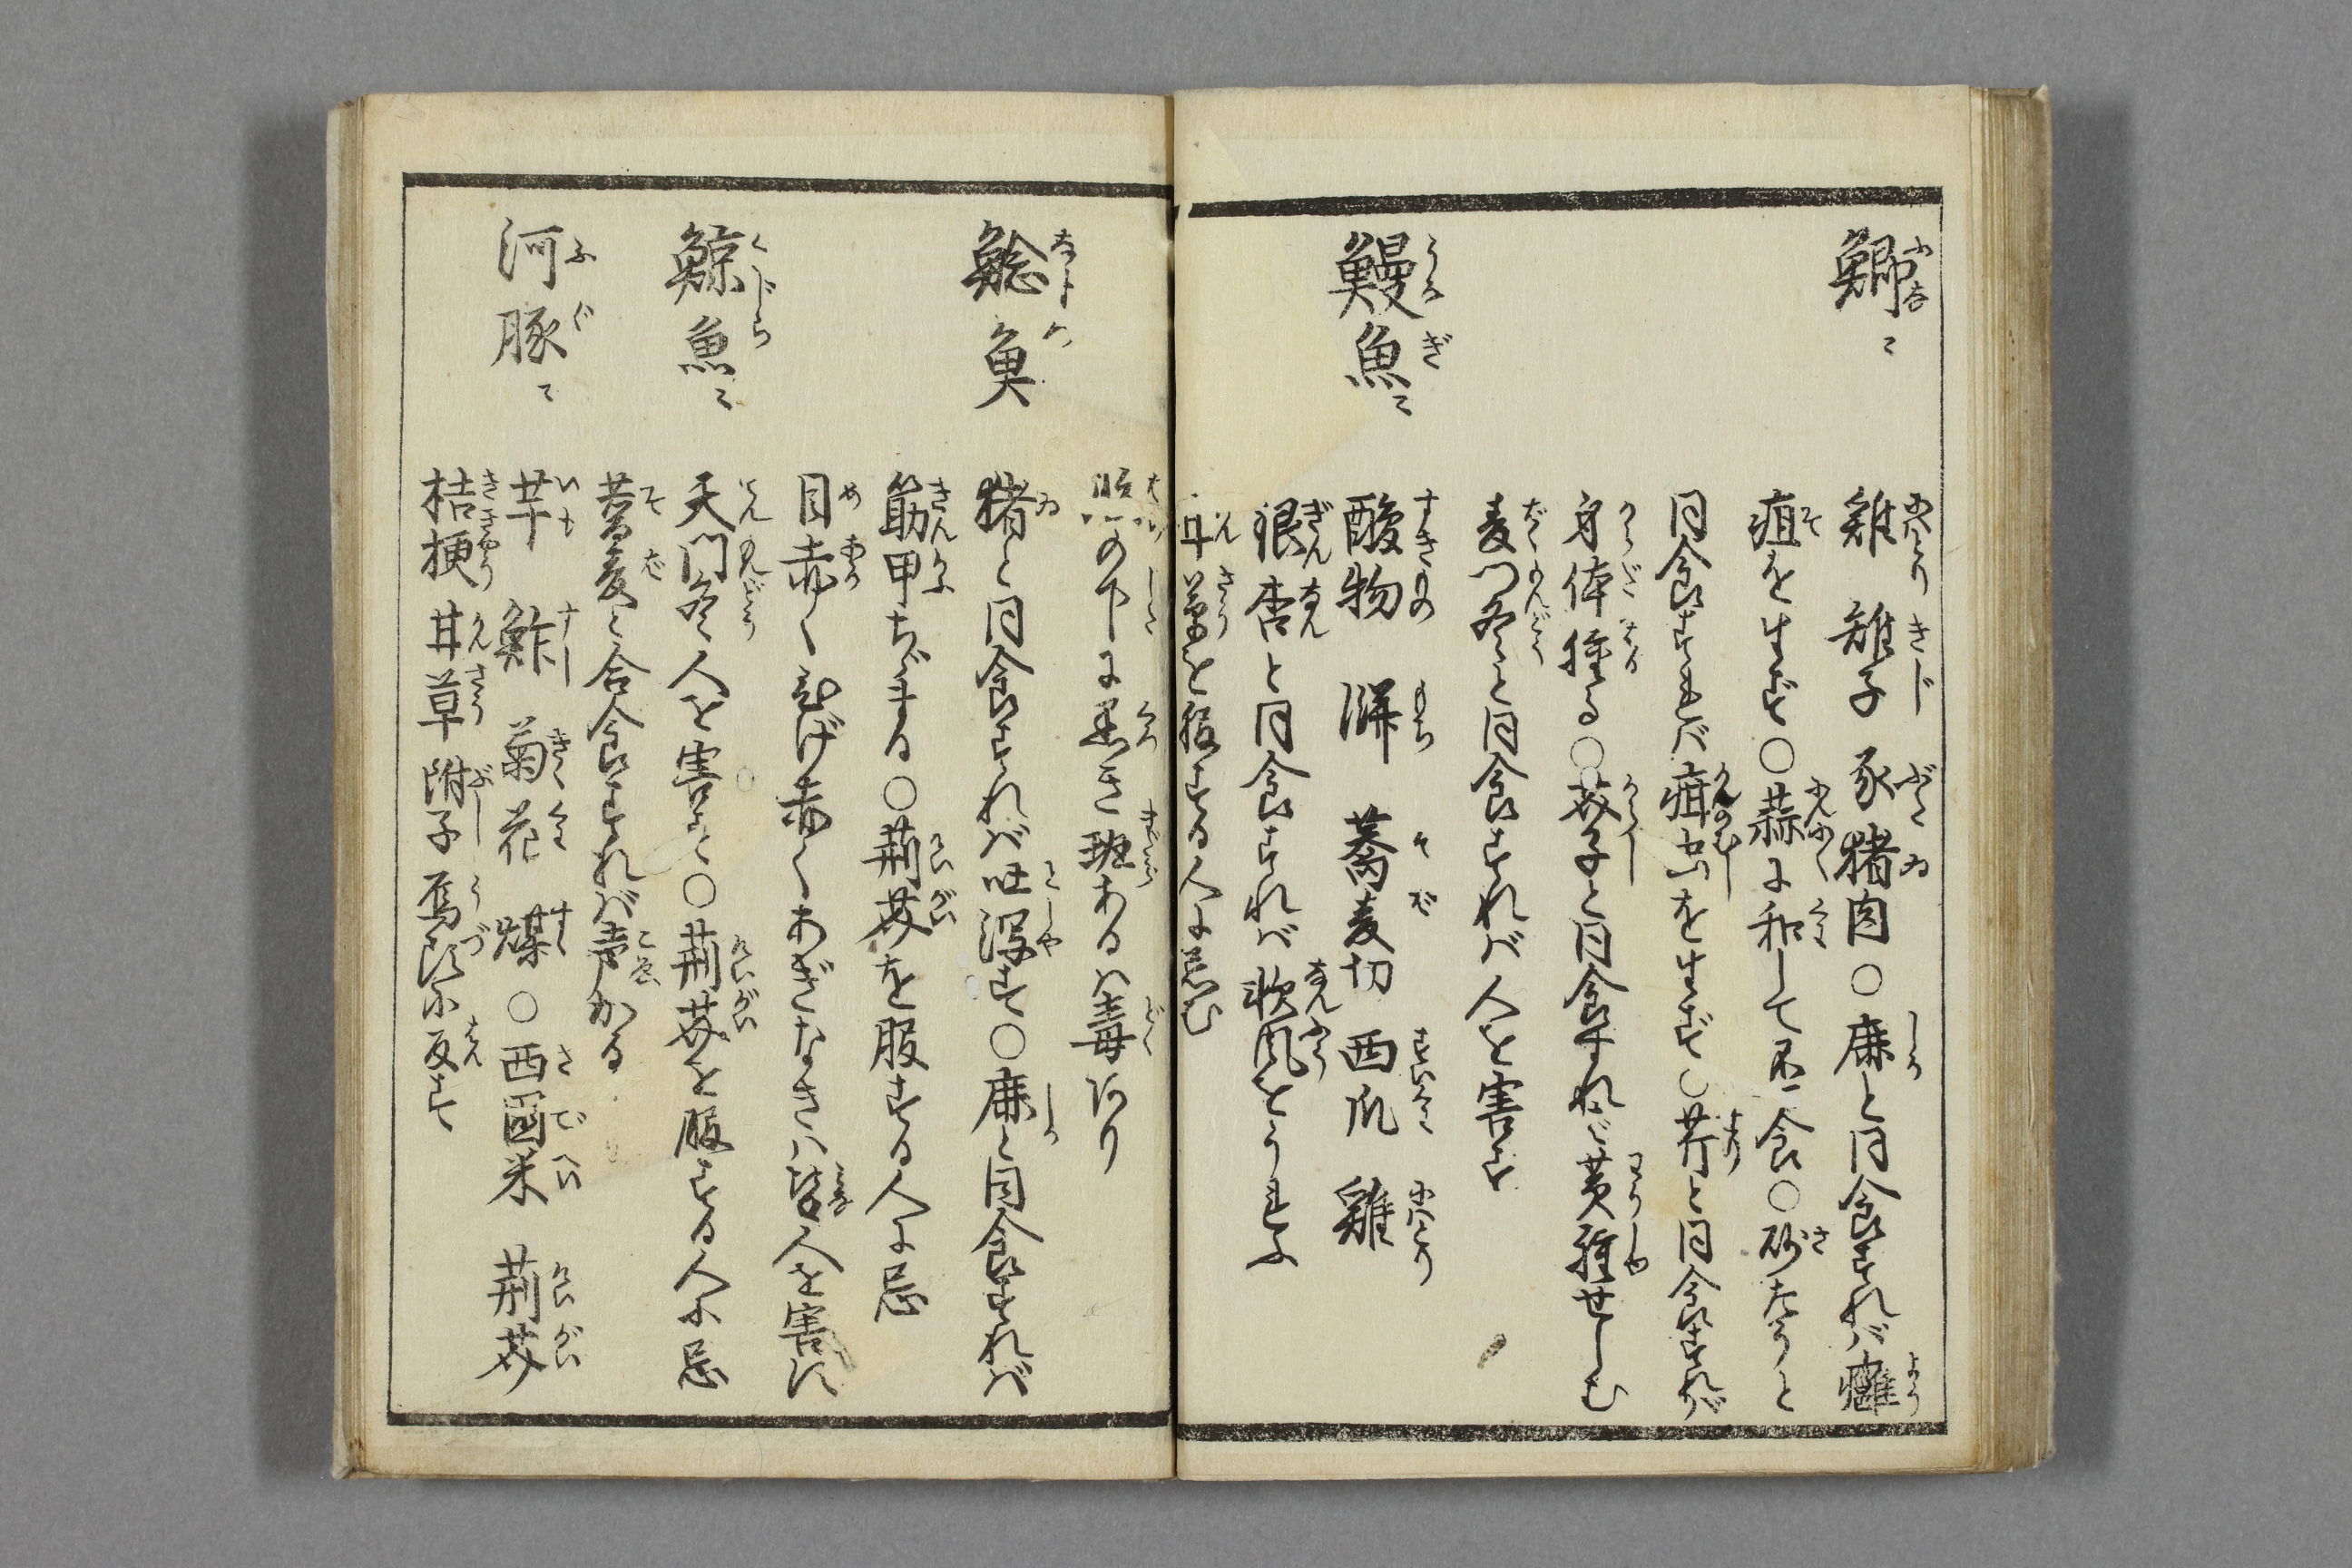 鯽ニ 雞 雉子 豕 猪肉 ○麻と同食すれバ癰
疽を生ず○蒜に和して不食○砂たうと
同食すれバ疳虫を生ず○芥と同食すれバ
身体腫る○芥子と同食すれバ黄種せしむ
麦門冬と同食すれバ人を害す
鰻魚ニ 酸物 餅 蕎麦切 西瓜 雞
銀杏と同食すれバ軟風をうれふ
甘草を服する人に忌む
の下に黒き斑あるハ毒あり
鯰魚 猪と同食すれバ吐瀉す○麻と同食すれバ
筋甲ちゞまる○荊芥を服する人に忌
目赤くひげ赤くあぎなきハ皆人を害す
鯨魚ニ 天門冬人を害す○荊芥を服する人に忌
蕎麦と合食すれバ声かる
河豚ニ 芋 鮓 菊花 煤 ○西國米 荊芥
桔梗 甘草 附子 烏頭に反す